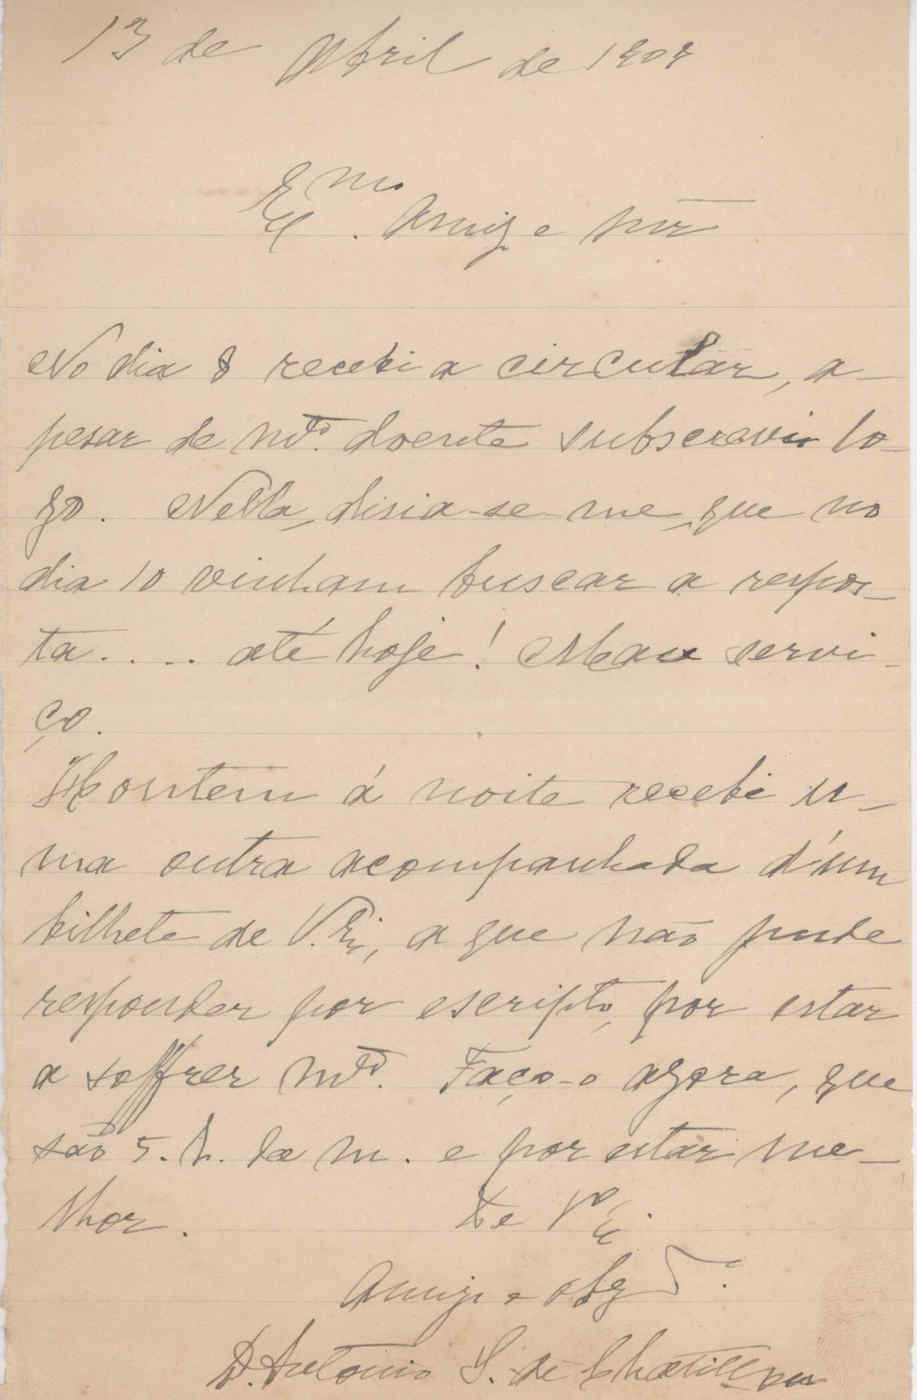 13 de Abril de 1909
Exmo. Amigo e Snr
No dia 8 recebi a circular, a-
pesar de mto. doente subscrevi lo-
go. Nella, disia-se-me, que no
dia 10 vinham buscar a respos-
ta.... até hoje! Mau servi-
ço.
Hontem á noite recebi u-
ma outra acompanhada d'um
bilhete de V. Ex, a que não pude
responder por escripto, por estar
a soffrer mto. Faço-o agora, que
são 5. h. da m. e por estar me-
lhor. De V. Ex.
Amigo e obgdo.
D. Antonio S. de Chatillon